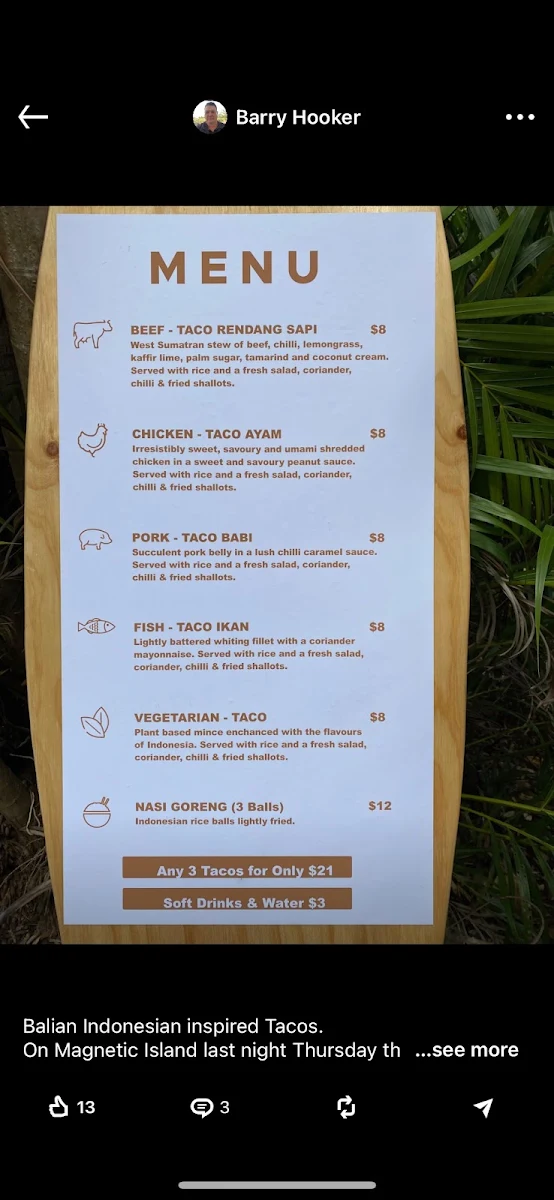 Barry Hooker
MENU
BEEF - TACO RENDANG SAPI $8
West Sumatran stew of beef, chilli, lemongrass,
kaffir lime, palm sugar, tamarind and coconut cream.
Served with rice and a fresh salad, coriander,
chilli & fried shallots.
CHICKEN - TACO AYAM $8
Irresistibly sweet, savoury and umami shredded
chicken in a sweet and savoury peanut sauce.
Served with rice and a fresh salad, coriander,
chilli & fried shallots.
PORK - TACO BABI $8
Succulent pork belly in a lush chilli caramel sauce.
Served with rice and a fresh salad, coriander,
chilli & fried shallots.
FISH - TACO IKAN $8
Lightly battered whiting fillet with a coriander
mayonnaise. Served with rice and a fresh salad,
coriander, chilli & fried shallots.
VEGETARIAN - TACO $8
Plant based mince enchanced with the flavours
of Indonesia. Served with rice and a fresh salad,
coriander, chilli & fried shallots.
NASI GORENG (3 Balls) $12
Indonesian rice balls lightly fried.
Any 3 Tacos for Only $21
Soft Drinks & Water $3
Balian Indonesian inspired Tacos.
On Magnetic Island last night Thursday th ...see more
13 3